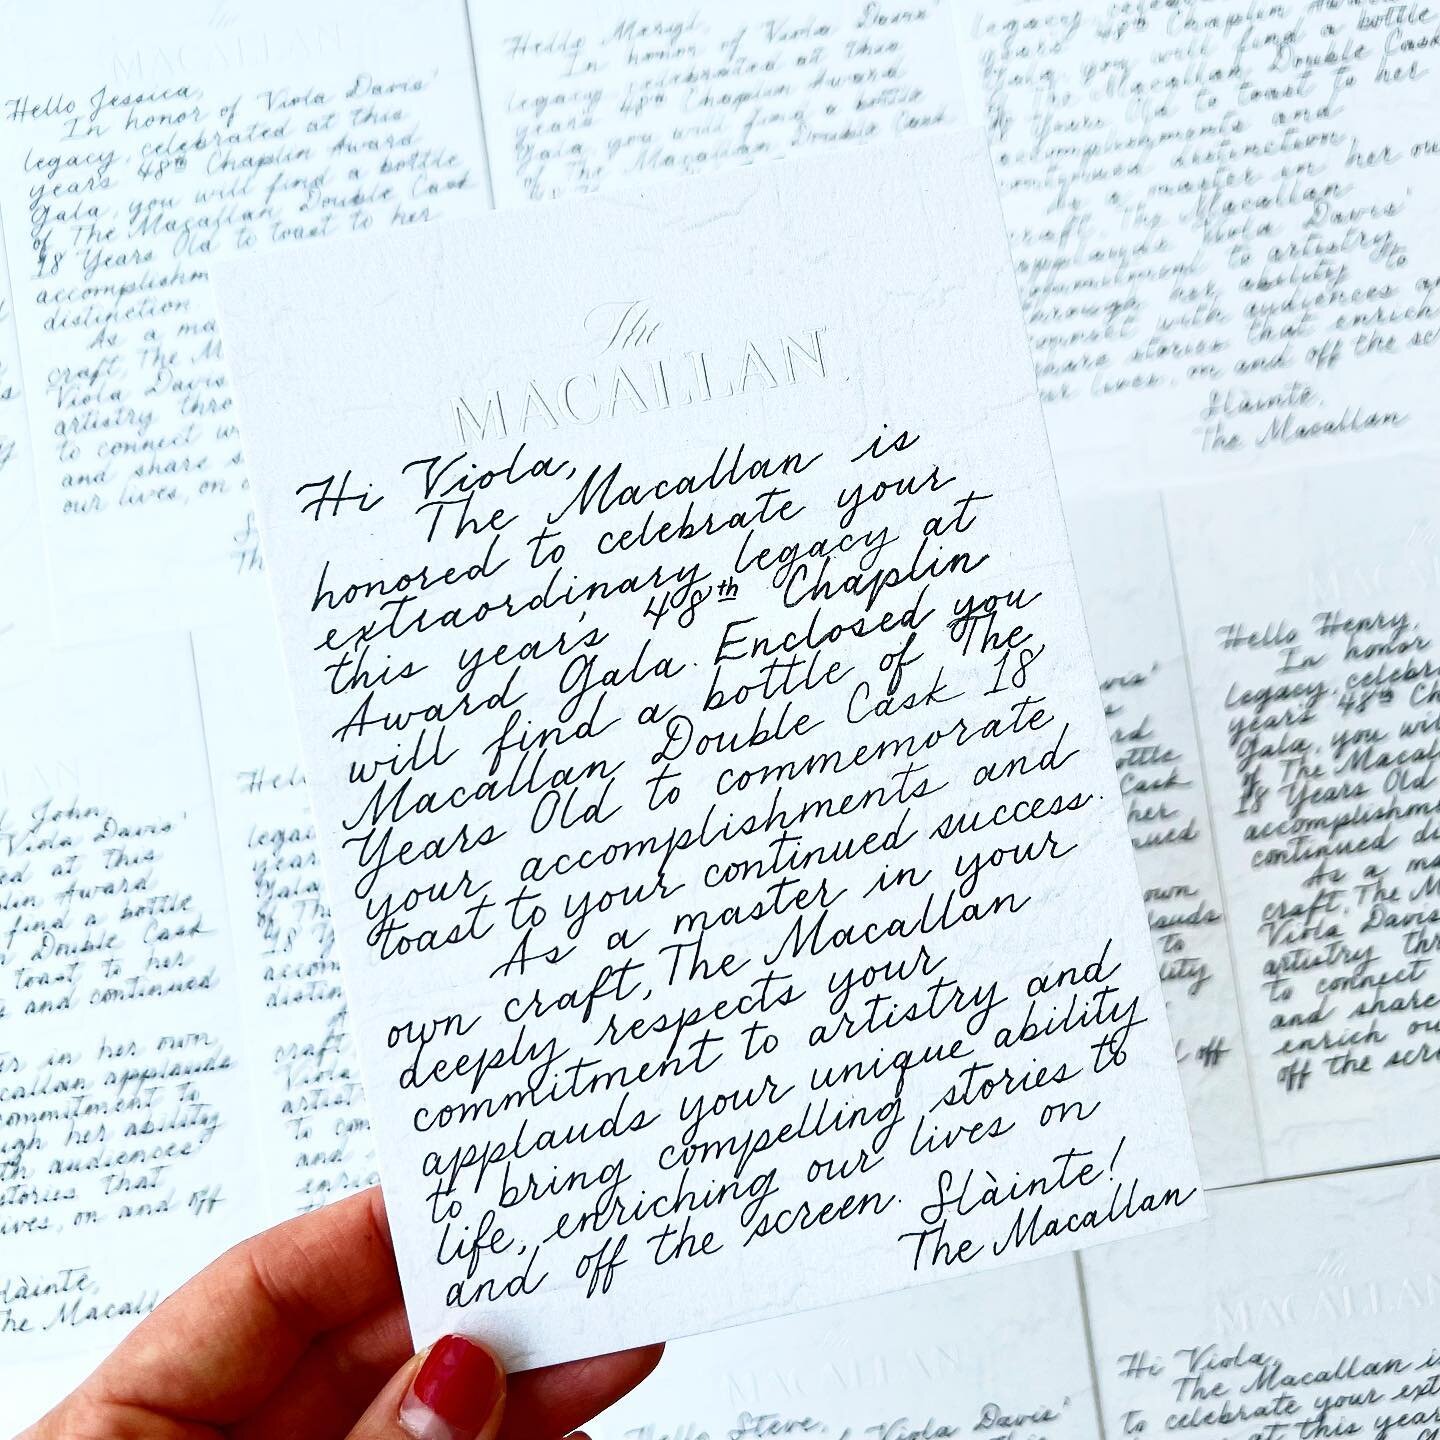 The
MACALLAN
Hi Viola,
The Macallan is
honored to celebrate your
extraordinary legacy at
this year's 48th Chaplin
Award Gala. Enclosed you
will find a bottle of The
Macallan Double Cask 18
Years Old to commemorate
your accomplishments and
toast to your continued success.
As a master in your
own craft, The Macallan
deeply respects your
commitment to artistry and
applauds your unique ability
to bring compelling stories to
life, enriching our lives on
and off the screen. Slàinte!
The Macallan
Hello Jessica,
In honor of Viola Davis'
legacy, celebrated at this
years 48th Chaplin Award
Gala, you will find a bottle
of The Macallan Double Cask
18 Years Old to toast to her
distinction
As a
craft, The
Viola Davis
artistry
to connect
and share
our lives, on
Hello Meryl,
In honor of Viola Davis'
legacy, celebrated at this
years 48th Chaplin Award
Gala, you will find a bottle
of The Macallan Double Cask
Gala, you will find a bottle
of The Macallan Double Cask
Years Old to toast to her
accomplishments and
continued distinction.
As a master in her own
craft, The Macallan
applauds Viola Davis'
commitment to artistry
through her ability to
connect with audiences
share stories that enrich
our lives, on and off the
Slàinte,
The Macallan
Hello Henry,
In honor
legacy,
years 48th
Gala, you will
of The
18 Years Old
continued
As a
craft, The
Viola Davis
artistry
to connect
and share
enrich
off the
John,
Viola Davis'
at this
Award
find a bottle
Double Cask
toast to her
and continued
in her own
applauds
to
her ability
audiences
that
on and off
Hello Steve,
of Viola Davis'
MACALLAN
Hi Viola,
The Macallan
to celebrate your
at this year